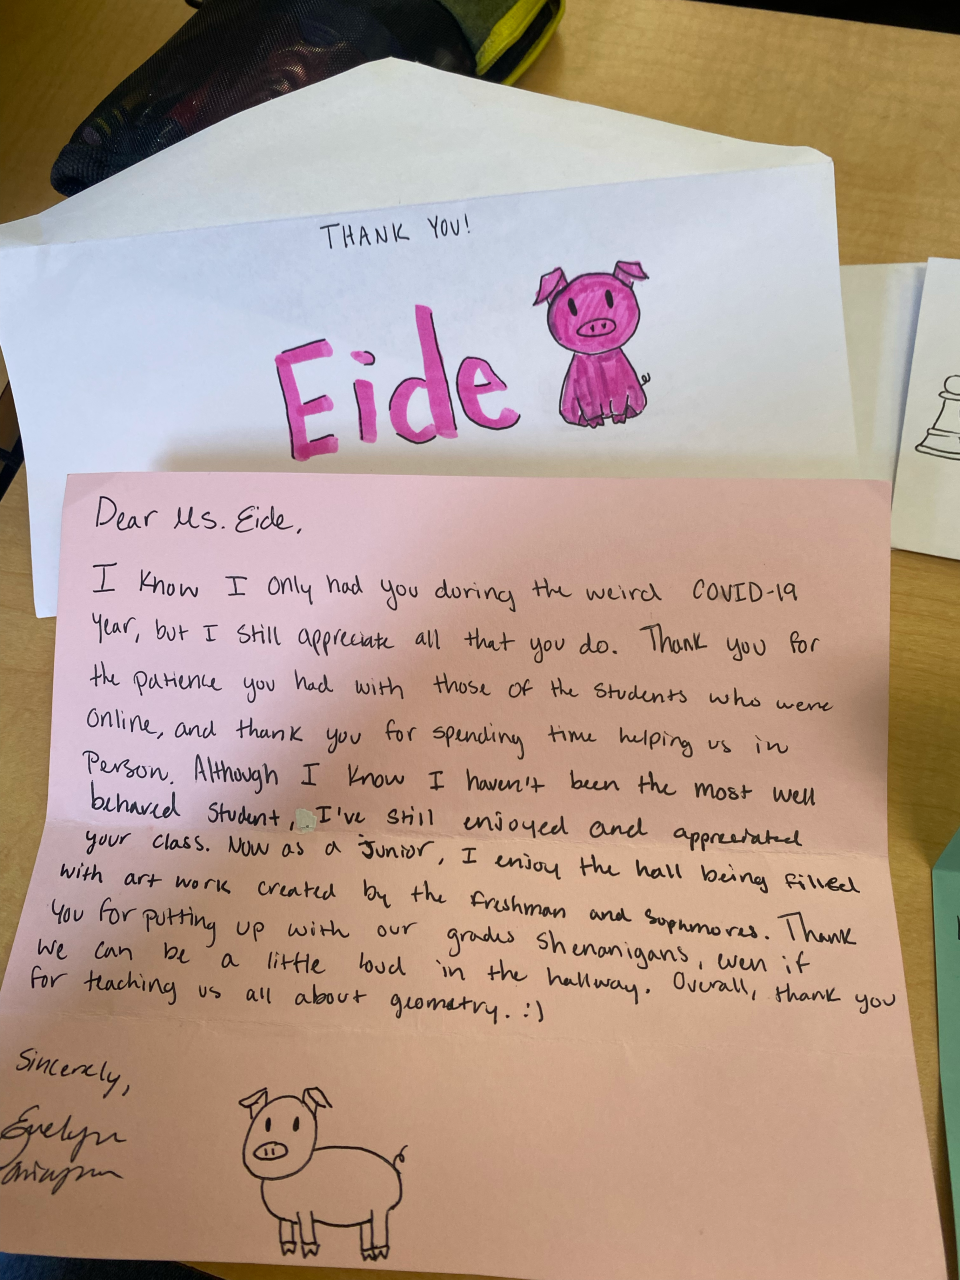 THANK YOU!
Eide
Dear Ms. Eide,
I know I only had you during the weird COVID-19
year, but I still appreciate all that you do. Thank you for
the patience you had with those of the students who were
online, and thank you for spending time helping us in
person. Although I know I haven't been the most well
behaved student, I've still enjoyed and appreciated
your class. Now as a junior, I enjoy the hall being filled
with art work created by the freshman and sophmores. Thank
you for putting up with our grades shenanigans, even if
we can be a little loud in the hallway. Overall, thank you
for teaching us all about geometry. :)
Sincerely,
Evelyn